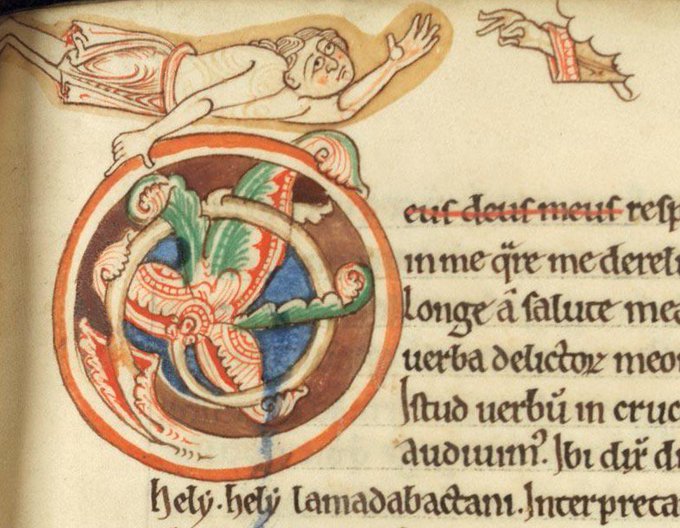 eus deus meus resp
in me q̄re me dereli
longe a̅ salute mea
uerba delictoꝝ meoꝝ
Istud uerbū in cruc
audiuim᷒. Ibi dix̅ d
hely. hely lamadabactani. Interpreta